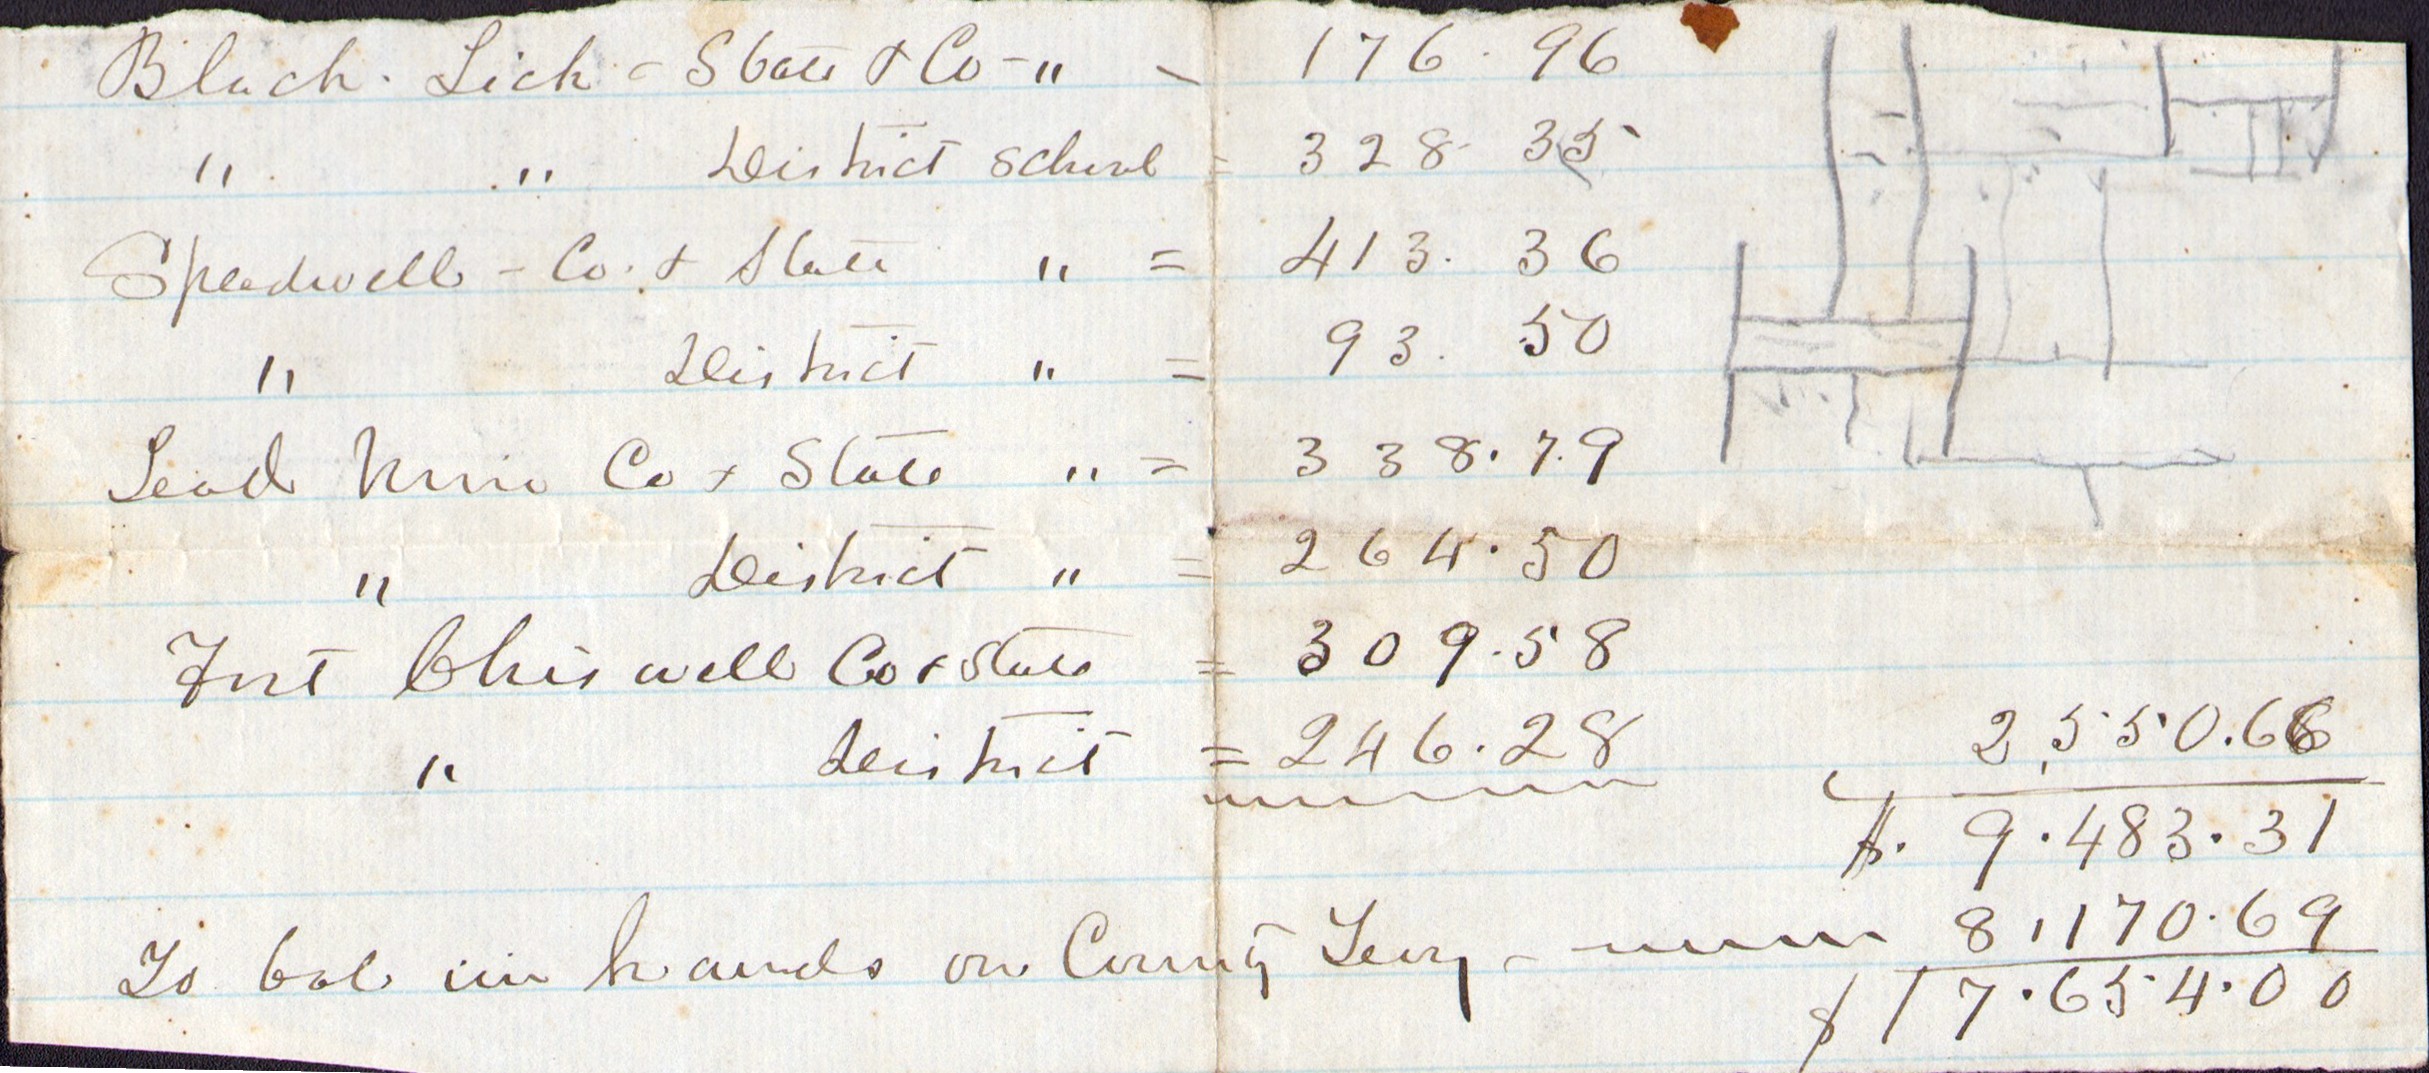 Black Lick - State & Co - " - 176.96
" " District School = 328.35
Speedwell - Co. & State " = 413.36
" District " = 93.50
Lead Mine Co & State " = 338.79
" District " = 264.50
Fort Chiswell Co & State = 309.58
" District = 246.28 2,550.66
$. 9.483.31
To bal in hands on County Levy - 8,170.69
$17.654.00